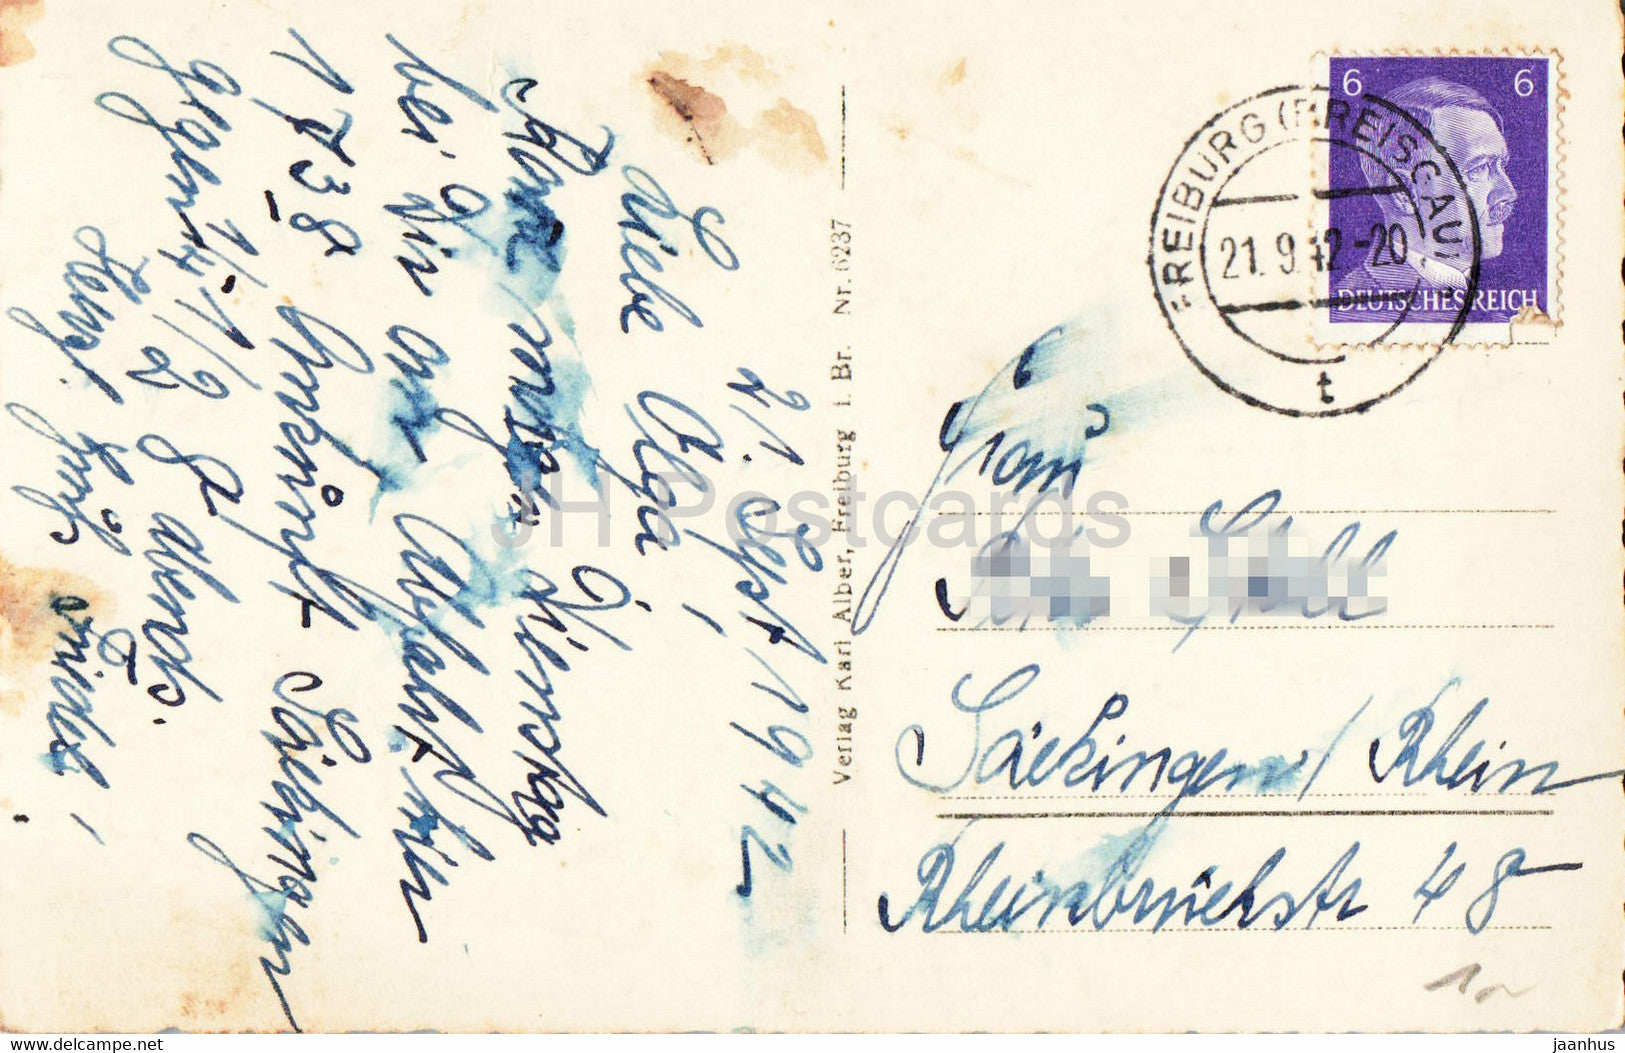 21. Sept 1942
Liebe Olga!
Komme morgen Dienstag
bei Dir an Abfahrt hier
1738 Ankunft Säckingen
gegen 1/41/2 8 abends.
Herzl. Grüße
Verlag Karl Alber, Freiburg i. Br. Nr. 6237
6 6
DEUTSCHES REICH
FREIBURG (BREISGAU)
21.9.42-20
t
Säckingen/Rhein
Rheinbrückstr 48
JH Postcards
www.delcampe.net
jaanhus